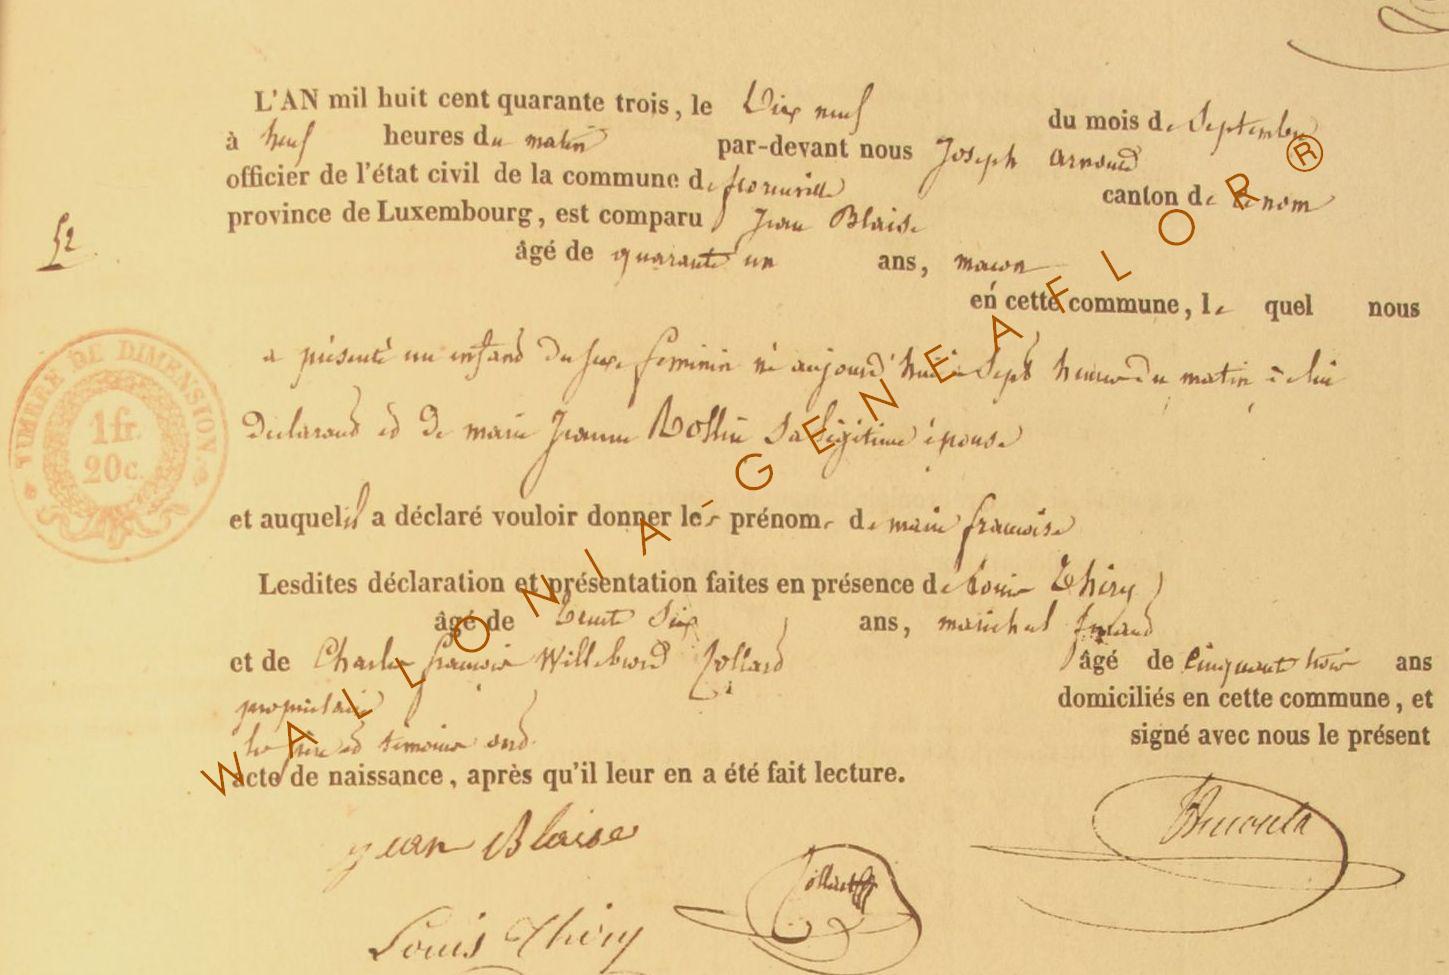 L'AN mil huit cent quarante trois, le Dix neuf du mois de Septembre
à neuf heures du matin par-devant nous Joseph Arnould
officier de l'état civil de la commune de florenville canton de
province de Luxembourg, est comparu Jean Blaise
52
âgé de quarante un ans, macon
en cette commune, le quel nous
a présenté un enfant du sexe feminin né aujourd'hui à Sept heures du matin de lui
déclarant et de marie Jeanne Rollin sa légitime épouse
TIMBRE DE DIMENSION.
1fr.
20c.
et auquel il a déclaré vouloir donner les prénoms de marie francoise
Lesdites déclaration et présentation faites en présence de Louis Thiry
âgé de trente Six ans, maréchal ferrand
et de Charles francois Willebrord Collard âgé de cinquante trois ans
propriétaire domiciliés en cette commune, et
les père et témoins ont signé avec nous le présent
acte de naissance, après qu'il leur en a été fait lecture.
Jean Blaise
Collard
Louis Thiry
WALLONIA-GENEAFLOR®